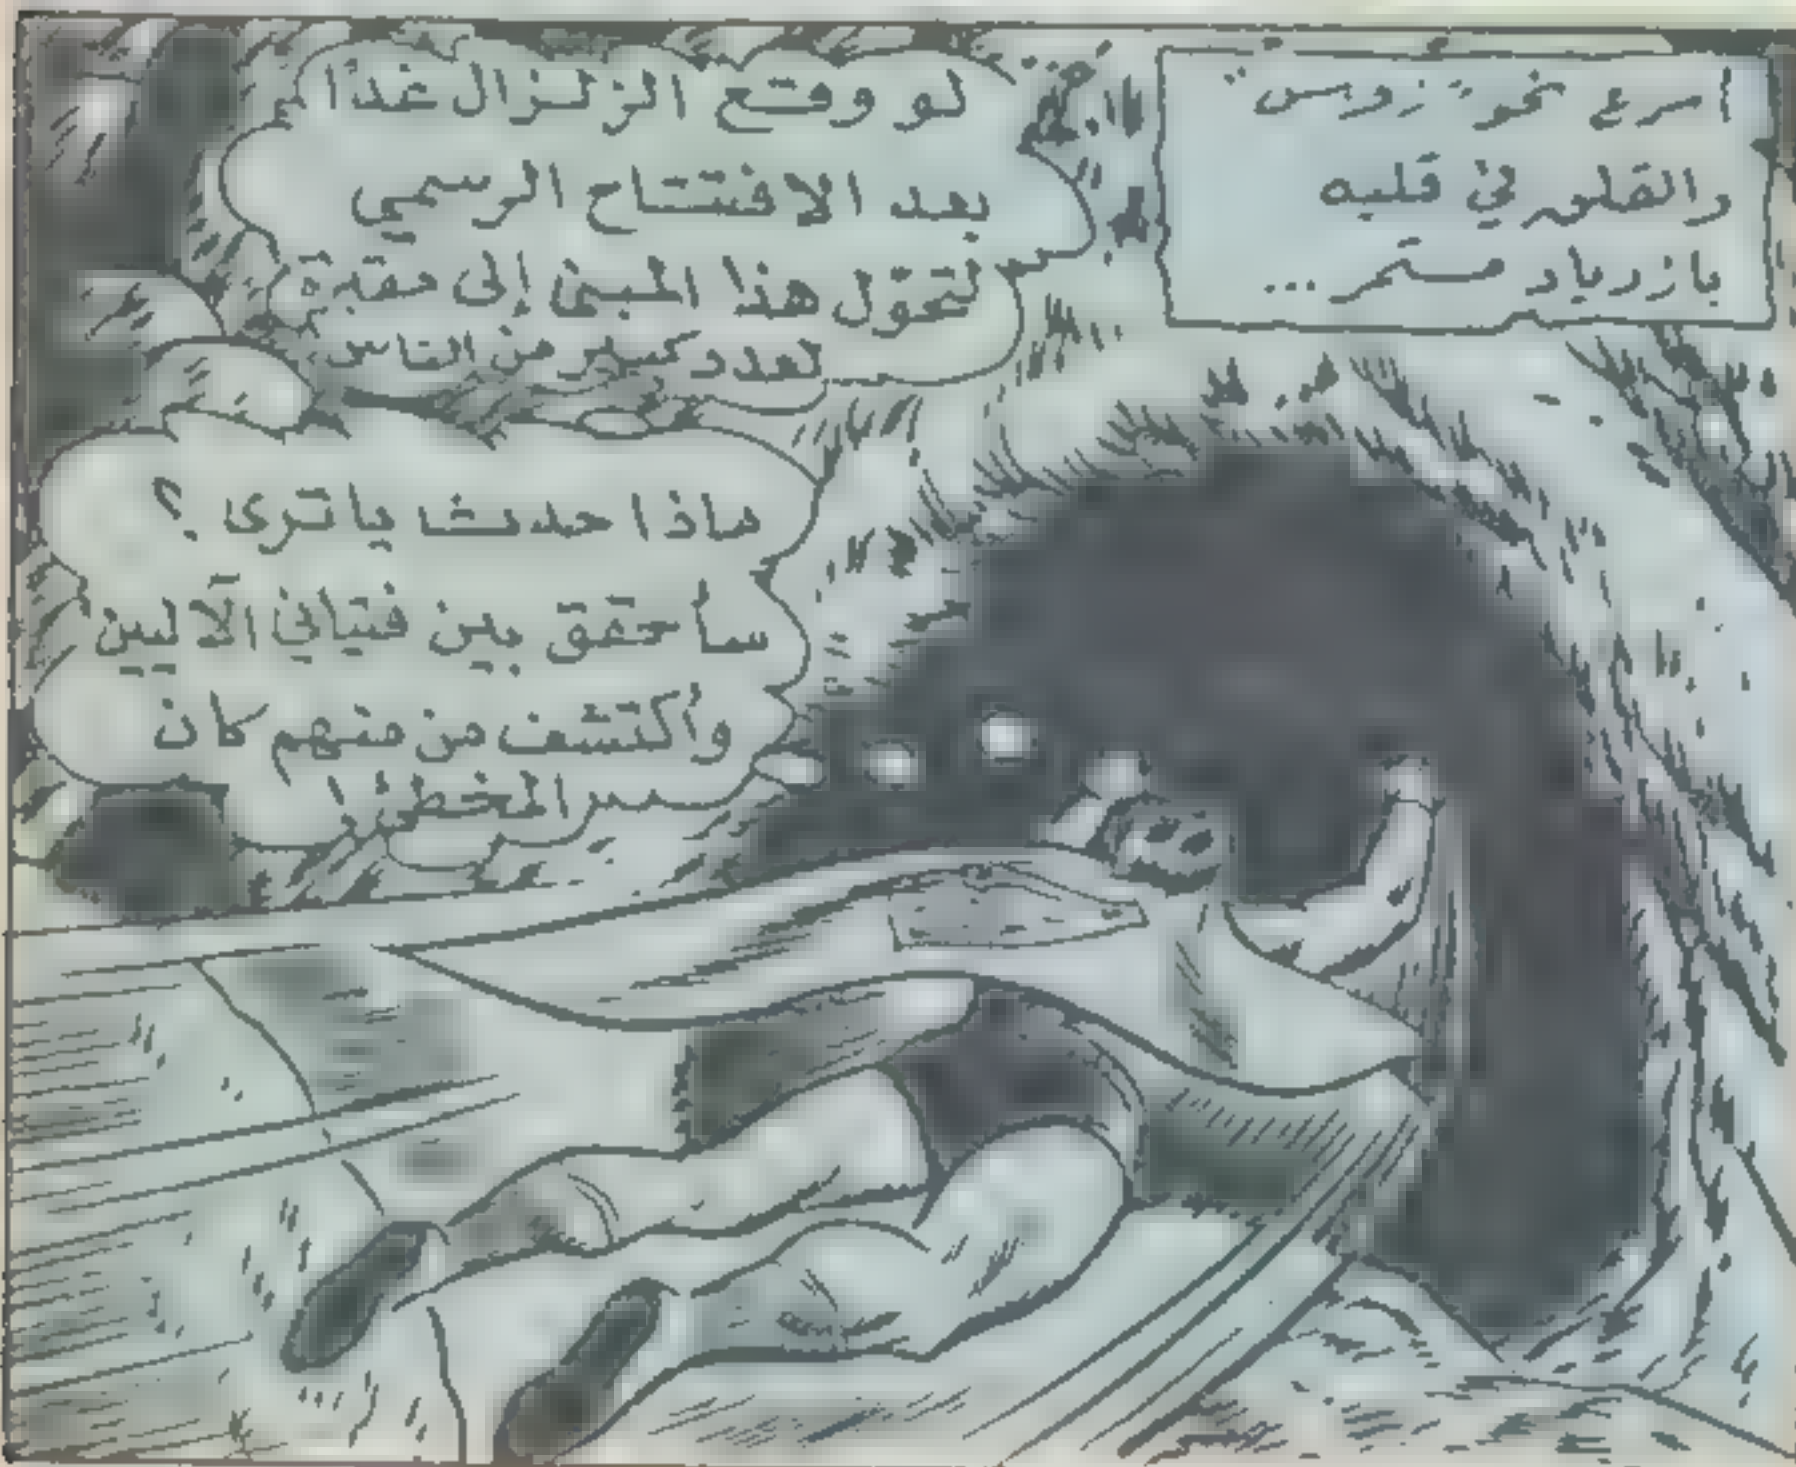 أسرع نحو "زوس"
والقلق في قلبه
بازدياد مستمر...
لو وقع الزلزال غدًا
بعد الافتتاح الرسمي
لتحوّل هذا المبنى إلى مقبرة
لعدد كبير من الناس
ماذا حدث يا ترى ؟
سأحقق بين فتياني الآليين
وأكتشف من منهم كان
المخطئ !